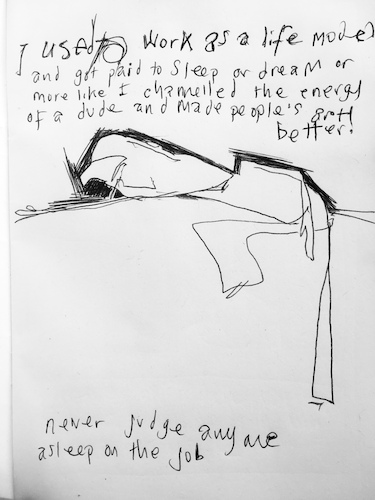 I used to work as a life model
and got paid to sleep or dream or
more like I channelled the energy
of a dude and made people's
better!
never judge anyone
asleep on the job